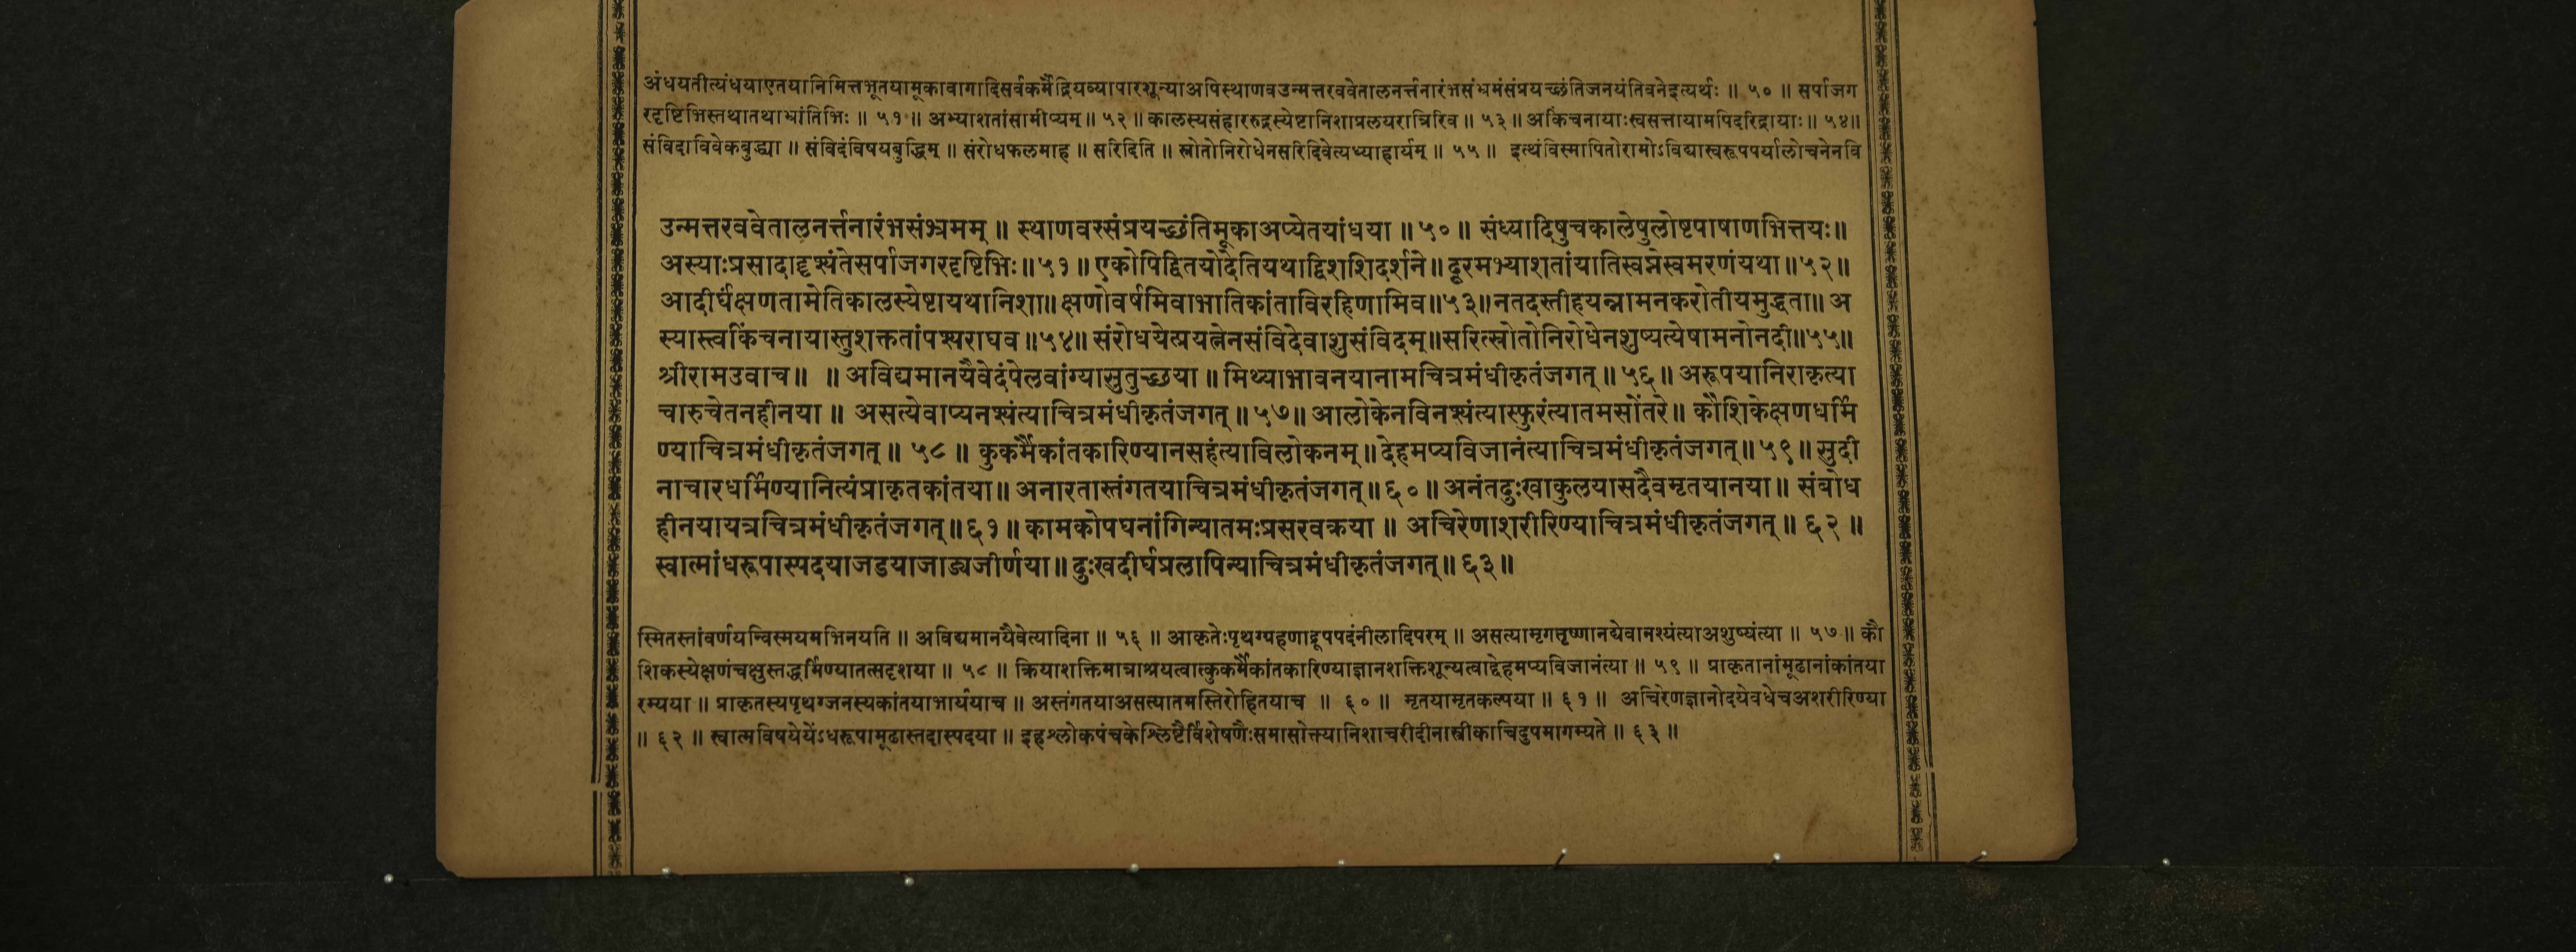 अंधयतीत्यंधयाएतयानिमित्तभूतयामूकावागादिसर्वकर्मेंद्रियव्यापारशून्याअपिस्थाणवउन्मत्तरववेतालनर्त्तनारंभसंभ्रमंसंप्रयच्छंतिजनयंतिवनेइत्यर्थः ॥ ५० ॥ सर्पाजग
रदृष्टिभिस्तथातथाभ्रांतिभिः ॥ ५१ ॥ अभ्याशतांसामीप्यम् ॥ ५२ ॥ कालस्यसंहाररुद्रस्येष्टानिशाप्रलयरात्रिरिव ॥ ५३ ॥ अकिंचनायाःस्वसत्तायामपिदरिद्रायाः ॥ ५४॥
संविदाविवेकबुद्ध्या ॥ संविदंविषयबुद्धिम् ॥ संरोधफलमाह ॥ सरिदिति ॥ स्रोतोनिरोधेनसरिदिवेत्यध्याहार्यम् ॥ ५५ ॥ इत्थंविस्मापितोरामोऽविद्यास्वरूपपर्यालोचनेनवि
उन्मत्तरववेतालनर्त्तनारंभसंभ्रमम् ॥ स्थाणवरसंप्रयच्छंतिमूकाअप्येतयांधया ॥ ५० ॥ संध्यादिषुचकालेषुलोष्टपाषाणभित्तयः॥
अस्याःप्रसादादृश्यंतेसर्पाजगरदृष्टिभिः॥५१॥ एकोपिद्वितयोदेतियथाद्विशशिदर्शने॥ दूरमभ्याशतांयातिस्वप्नेस्वमरणंयथा॥५२॥
आदीर्घंक्षणतामेतिकालस्येष्टायथानिशा॥ क्षणोवर्षमिवाभातिकांताविरहिणामिव॥५३॥नतदस्तीहयन्नामनकरोतीयमुद्धता॥ अ
स्यास्त्वकिंचनायास्तुशक्ततांपश्यराघव ॥५४॥ संरोधयेत्प्रयत्नेनसंविदेवाशुसंविदम्॥सरित्स्रोतोनिरोधेनशुष्यत्येषामनोनदी॥५५॥
श्रीरामउवाच॥ ॥ अविद्यमानयैवेदंपेलवांग्यासुतुच्छया ॥ मिथ्याभावनयानामचित्रमंधीकृतंजगत् ॥ ५६ ॥ अरूपयानिराकृत्या
चारुचेतनहीनया ॥ असत्येवाप्यनश्यंत्याचित्रमंधीकृतंजगत् ॥ ५७॥ आलोकेनविनश्यंत्यास्फुरंत्यातमसोंतरे॥ कौशिकेक्षणधर्मि
ण्याचित्रमंधीकृतंजगत् ॥ ५८ ॥ कुकर्मैकांतकारिण्यानसहंत्याविलोकनम् ॥ देहमप्यविजानंत्याचित्रमंधीकृतंजगत्॥५९॥ सुदी
नाचारधर्मिण्यानित्यंप्राकृतकांतया॥ अनारतास्तंगतयाचित्रमंधीकृतंजगत्॥६०॥ अनंतदुःखाकुलयासदैवमृतयानया॥ संबोध
हीनयायत्रचित्रमंधीकृतंजगत्॥६१॥ कामकोपघनांगिन्यातमःप्रसरवक्रया ॥ अचिरेणाशरीरिण्याचित्रमंधीकृतंजगत्॥ ६२ ॥
स्वात्मांधरूपास्पदयाजडयाजाड्यजीर्णया॥ दुःखदीर्घप्रलापिन्याचित्रमंधीकृतंजगत्॥ ६३॥
स्मितस्तांवर्णयन्विस्मयमभिनयति ॥ अविद्यमानयैवेत्यादिना ॥ ५६ ॥ आकृतेःपृथग्ग्रहणाद्रूपपदंनीलादिपरम् ॥ असत्यामृगतृष्णानद्येवानश्यंत्याअशुष्यंत्या ॥ ५७॥ कौ
शिकस्येक्षणंचक्षुस्तद्धर्मिण्यातत्सदृशया ॥ ५८ ॥ क्रियाशक्तिमात्राश्रयत्वात्कुकर्मैकांतकारिण्याज्ञानशक्तिशून्यत्वाद्देहमप्यविजानंत्या ॥ ५९ ॥ प्राकृतानांमूढानांकांतया
रम्यया ॥ प्राकृतस्यपृथग्जनस्यकांतयाभार्ययाच ॥ अस्तंगतयाअसत्यातमस्तिरोहितयाच ॥ ६० ॥ मृतयामृतकल्पया ॥ ६१ ॥ अचिरेणज्ञानोदयेवधेचअशरीरिण्या
॥ ६२ ॥ स्वात्मविषयेयेंऽधरूपामूढास्तदास्पदया ॥ इहश्लोकपंचकेश्लिष्टैर्विशेषणैःसमासोक्त्यानिशाचरीदीनास्त्रीकाचिदुपमागम्यते ॥ ६३ ॥